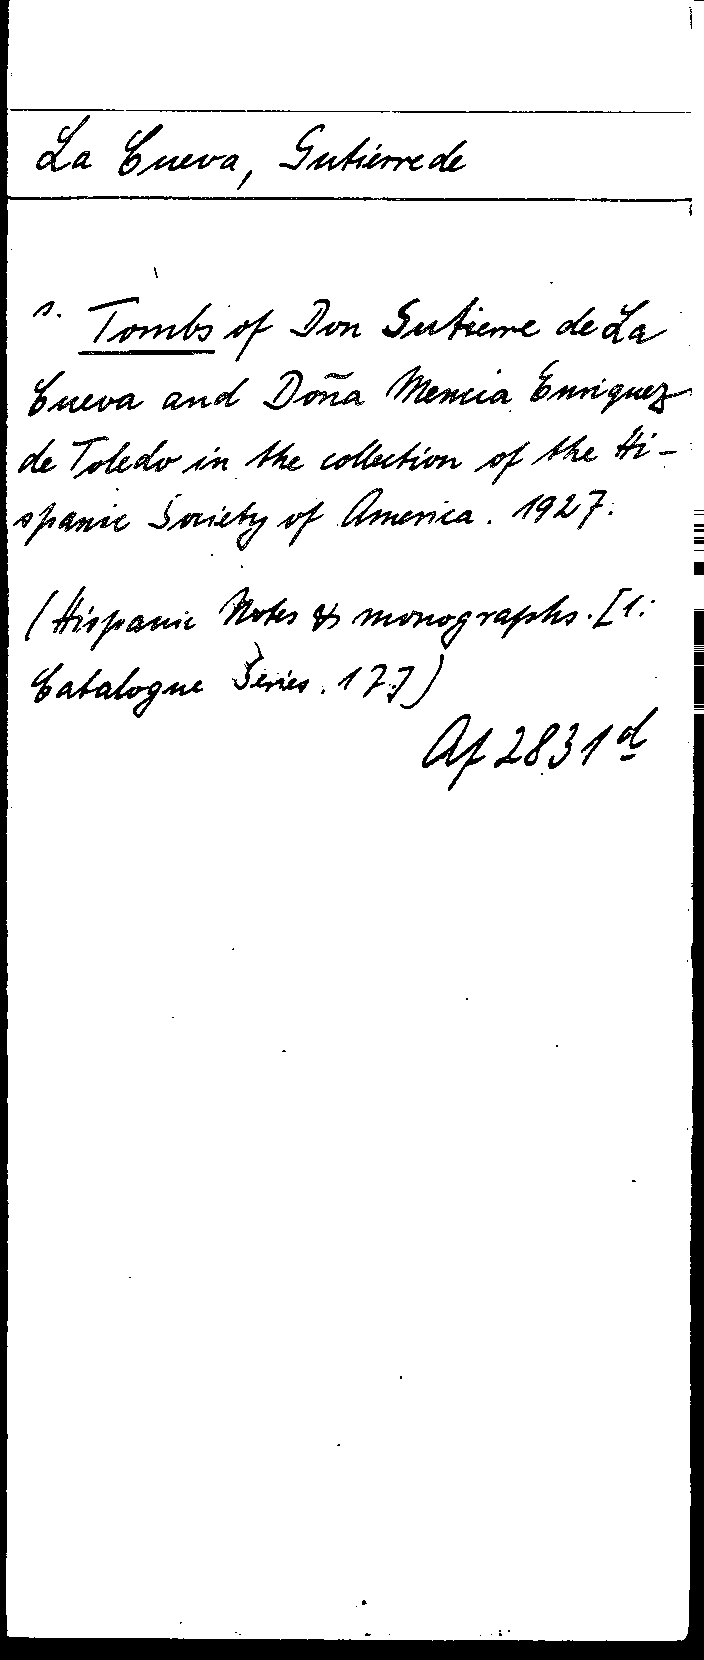 La Cueva, Gutierre de
s. Tombs of Don Gutierre de La
Cueva and Doña Mencia Enriquez
de Toledo in the collection of the Hi-
spanic Society of America. 1927.
(Hispanic Notes & monographs. [1:
Catalogue Series. 17])
Af 2831 d